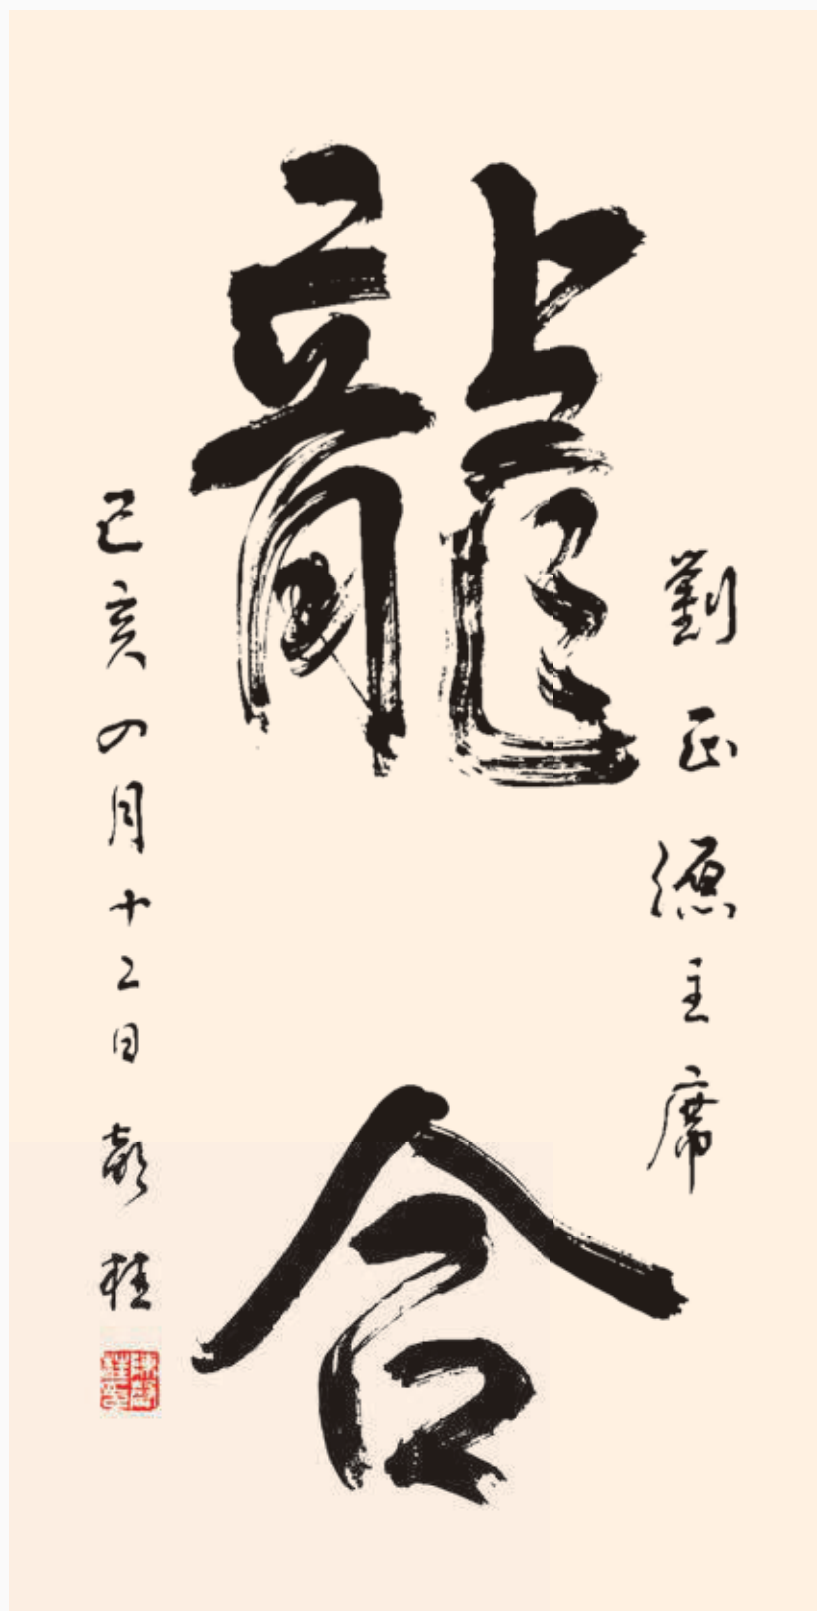 劉正德主席
龍合
己亥四月十二日 桂